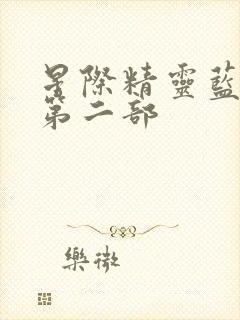 星際精靈藍
第二部
樂微